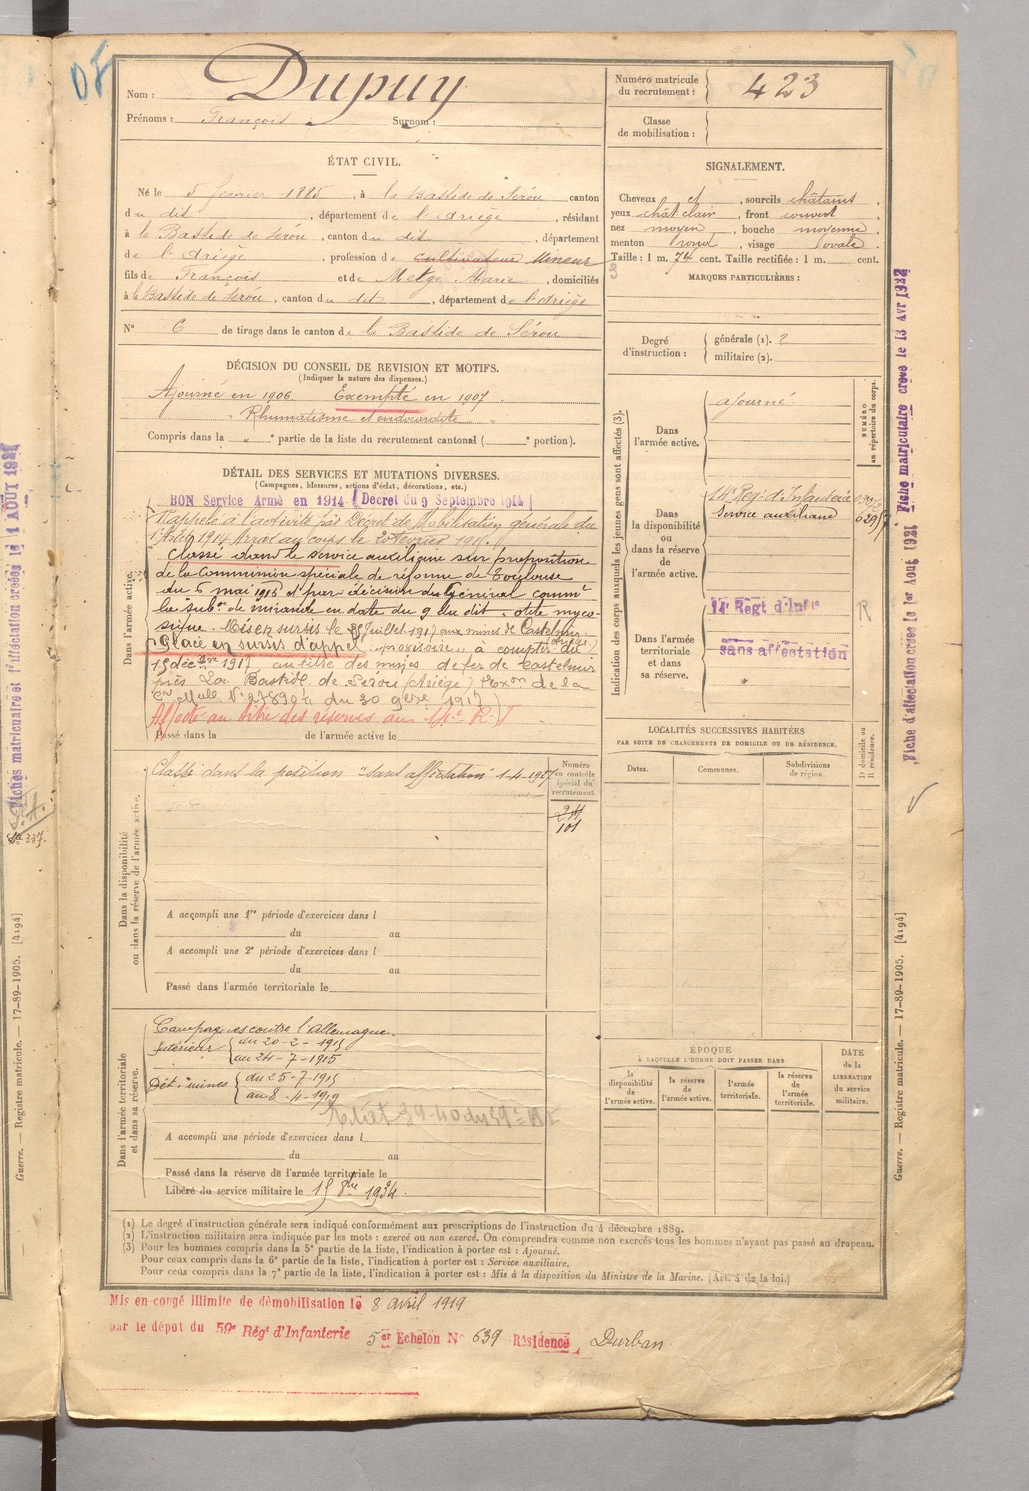 Nom : Dupuy
Prénoms : François Surnom :
ÉTAT CIVIL.
Né le 5 février 1885, à la Bastide de Sérou canton
du dit, département de l'Ariège, résidant
à la Bastide de Sérou, canton du dit, département
de l'Ariège, profession de cultivateur Mineur
fils de François et de Metge Marie, domiciliés
à la Bastide de Sérou, canton du dit, département de l'Ariège
N° 6 de tirage dans le canton de la Bastide de Sérou
DÉCISION DU CONSEIL DE REVISION ET MOTIFS.
(Indiquer la nature des dispenses.)
Ajourné en 1906 Exempté en 1907
Rhumatisme et endocardite
Compris dans la " partie de la liste du recrutement cantonal ( ° portion).
DÉTAIL DES SERVICES ET MUTATIONS DIVERSES.
(Campagnes, blessures, actions d'éclat, décorations, etc.)
Dans l'armée active.
BON Service Armé en 1914 (Décret du 9 Septembre 1914)
Rappelé à l'activité par Décret de Mobilisation générale du
1er Août 1914 Arrivé au corps le 20 février 1915.
Classé dans le service auxiliaire sur proposition
de la Commission spéciale de réforme de Toulouse
du 5 mai 1915 et par décision du Général commt
la subon de mirande en date du 9 du dit, otite myco
sique. Mis en sursis le 25 Juillet 1917 aux mines de Castelmir
(Ariège)
Placé en sursis d'appel "provisoire" à compter du
15 décbre 1917 au titre des mines de fer de Castelmir
près La Bastide de Serou (Ariège) Exon de la
Cre Mlle N° 27839 du 30 9bre 1917)
Affecté au titre des réserves au 14e R.I
Passé dans la de l'armée active le
Dans la disponibilité
ou dans la réserve de l'armée active.
Classé dans la position "sans affectation" 1-4-1927
Numéro
au contrôle
spécial du
recrutement.
101
A accompli une 1re période d'exercices dans l
du au
A accompli une 2e période d'exercices dans l
du au
Passé dans l'armée territoriale le
Dans l'armée territoriale
et dans sa réserve.
Campagnes contre l'Allemagne.
Intérieur du 20-2-1915
au 24-7-1915
Dét. mines du 25-7-1915
au 8-4-1919
A accompli une période d'exercices dans l
du au
Passé dans la réserve de l'armée territoriale le
Libéré du service militaire le 15 8bre 1934.
Numéro matricule
du recrutement : 423
Classe
de mobilisation :
SIGNALEMENT.
Cheveux et, sourcils châtains,
yeux chât clair, front couvert,
nez moyen, bouche moyenne,
menton rond, visage ovale.
Taille : 1 m. 74 cent. Taille rectifiée : 1 m. cent.
MARQUES PARTICULIÈRES :
Degré
d'instruction :
générale (1). 2
militaire (2).
Indication des corps auxquels les jeunes gens sont affectés (3).
NUMÉRO
au répertoire du corps.
Dans
l'armée active.
ajourné
Dans
la disponibilité
ou
dans la réserve
de
l'armée active.
14e Reg. d'Infanterie
Service auxiliaire
Dans l'armée
territoriale
et dans
sa réserve.
14e Regt d'Infie
sans affectation
R
LOCALITÉS SUCCESSIVES HABITÉES
PAR SUITE DE CHANGEMENTS DE DOMICILE OU DE RÉSIDENCE.
Dates.
Communes.
Subdivisions
de région.
D domicile ou
R résidence.
ÉPOQUE
À LAQUELLE L'HOMME DOIT PASSER DANS
la
disponibilité
de
l'armée active.
la réserve
de
l'armée active.
l'armée
territoriale.
la réserve
de
l'armée
territoriale.
DATE
de la
LIBÉRATION
du service
militaire.
(1) Le degré d'instruction générale sera indiqué conformément aux prescriptions de l'instruction du 4 décembre 1889.
(2) L'instruction militaire sera indiquée par les mots : exercé ou non exercé. On comprendra comme non exercés tous les hommes n'ayant pas passé au drapeau.
(3) Pour les hommes compris dans la 5e partie de la liste, l'indication à porter est : Ajourné.
Pour ceux compris dans la 6e partie de la liste, l'indication à porter est : Service auxiliaire.
Pour ceux compris dans la 7e partie de la liste, l'indication à porter est : Mis à la disposition du Ministre de la Marine. (Art. 4 de la loi.)
Mis en congé illimité de démobilisation le 8 avril 1919
par le dépot du 59e Régt d'Infanterie 5er Echelon N° 639 Résidence Durban
Fiche d'affectation créée le 1er Aout 1921 Fiche matriculaire créée le 13 Avr 1932
Guerre. — Registre matricule. — 17-89-1905. [4194]
Fiches matriculaire et d'affectation créées le 1 AOUT 1921
Guerre. — Registre matricule. — 17-89-1905. [4194]